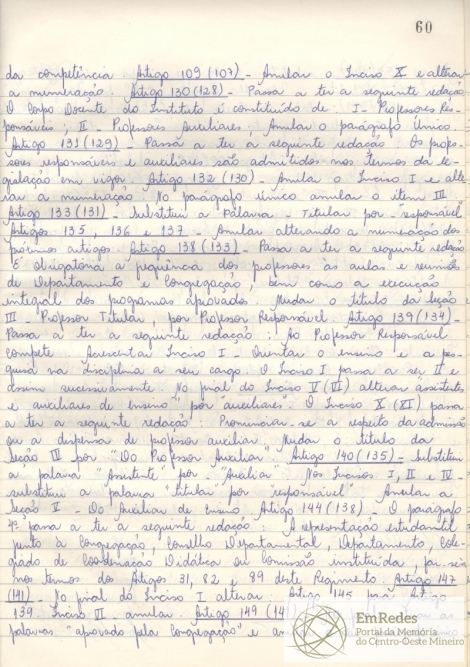 60
da competência. Artigo 109 (107) - Anular o Inciso X e alterar
a numeração. Artigo 130 (128) - Passa a ter a seguinte redação
O Corpo Docente do Instituto é constituído de I - Professores Res-
ponsáveis; II - Professores Auxiliares; Anular o parágrafo único.
Artigo 131 (129) - Passa a ter a seguinte redação Os profes-
sores responsáveis e auxiliares são admitidos nos termos da le-
gislação em vigor Artigo 132 (130) - Anular o Inciso I e alte-
rar a numeração. No parágrafo único anular o item III
Artigo 133 (131) - Substituir a Palavra - Titular por "responsável"
Artigos 135, 136 e 137 - Anular alterando a numeração dos
próximos artigos Artigo 138 (133) - Passa a ter a seguinte redação
É obrigatória a frequência dos professores às aulas e reuniões
de Departamento e Congregação, bem como a execução
integral dos programas aprovados. Mudar o título da Seção
III - Professor Titular, por Professor Responsável Artigo 139 (134) -
Passa a ter a seguinte redação: Ao Professor Responsável
compete Acrescentar Inciso I - Orientar o ensino e a pes-
quisa na disciplina a seu cargo. O Inciso I passa a ser II e
assim sucessivamente No final do Inciso V (VI) alterar assistentes
e auxiliares de ensino" por "auxiliares". O Inciso X (XI) passa
a ter a seguinte redação: Pronunciar-se a respeito da admissão
ou a dispensa de professor auxiliar Mudar o título da
Seção IV por "Do Professor Auxiliar" Artigo 140 (135) - Substituir
a palavra "Assistente" por "Auxiliar" Nos Incisos I, II e IV -
substituir a palavra "titular" por responsável" Anular a
Seção V - Do Auxiliar de Ensino Artigo 144 (138) - O parágrafo
4º passa a ter a seguinte redação A representação estudantil
junto à Congregação, Conselho Departamental, Departamento, Cole-
giado de Coordenação Didática ou Comissão instituída, far-se-á
nos termos dos Artigos 31, 82 e 89 deste Regimento. Artigo 147
(141) - No final do Inciso I alterar: Artigo 145 para Artigo
139. Inciso II - anular. Artigo 149 (14
palavras "aprovado pela Congregação" e
EmRedes
Portal da Memória
do Centro-Oeste Mineiro